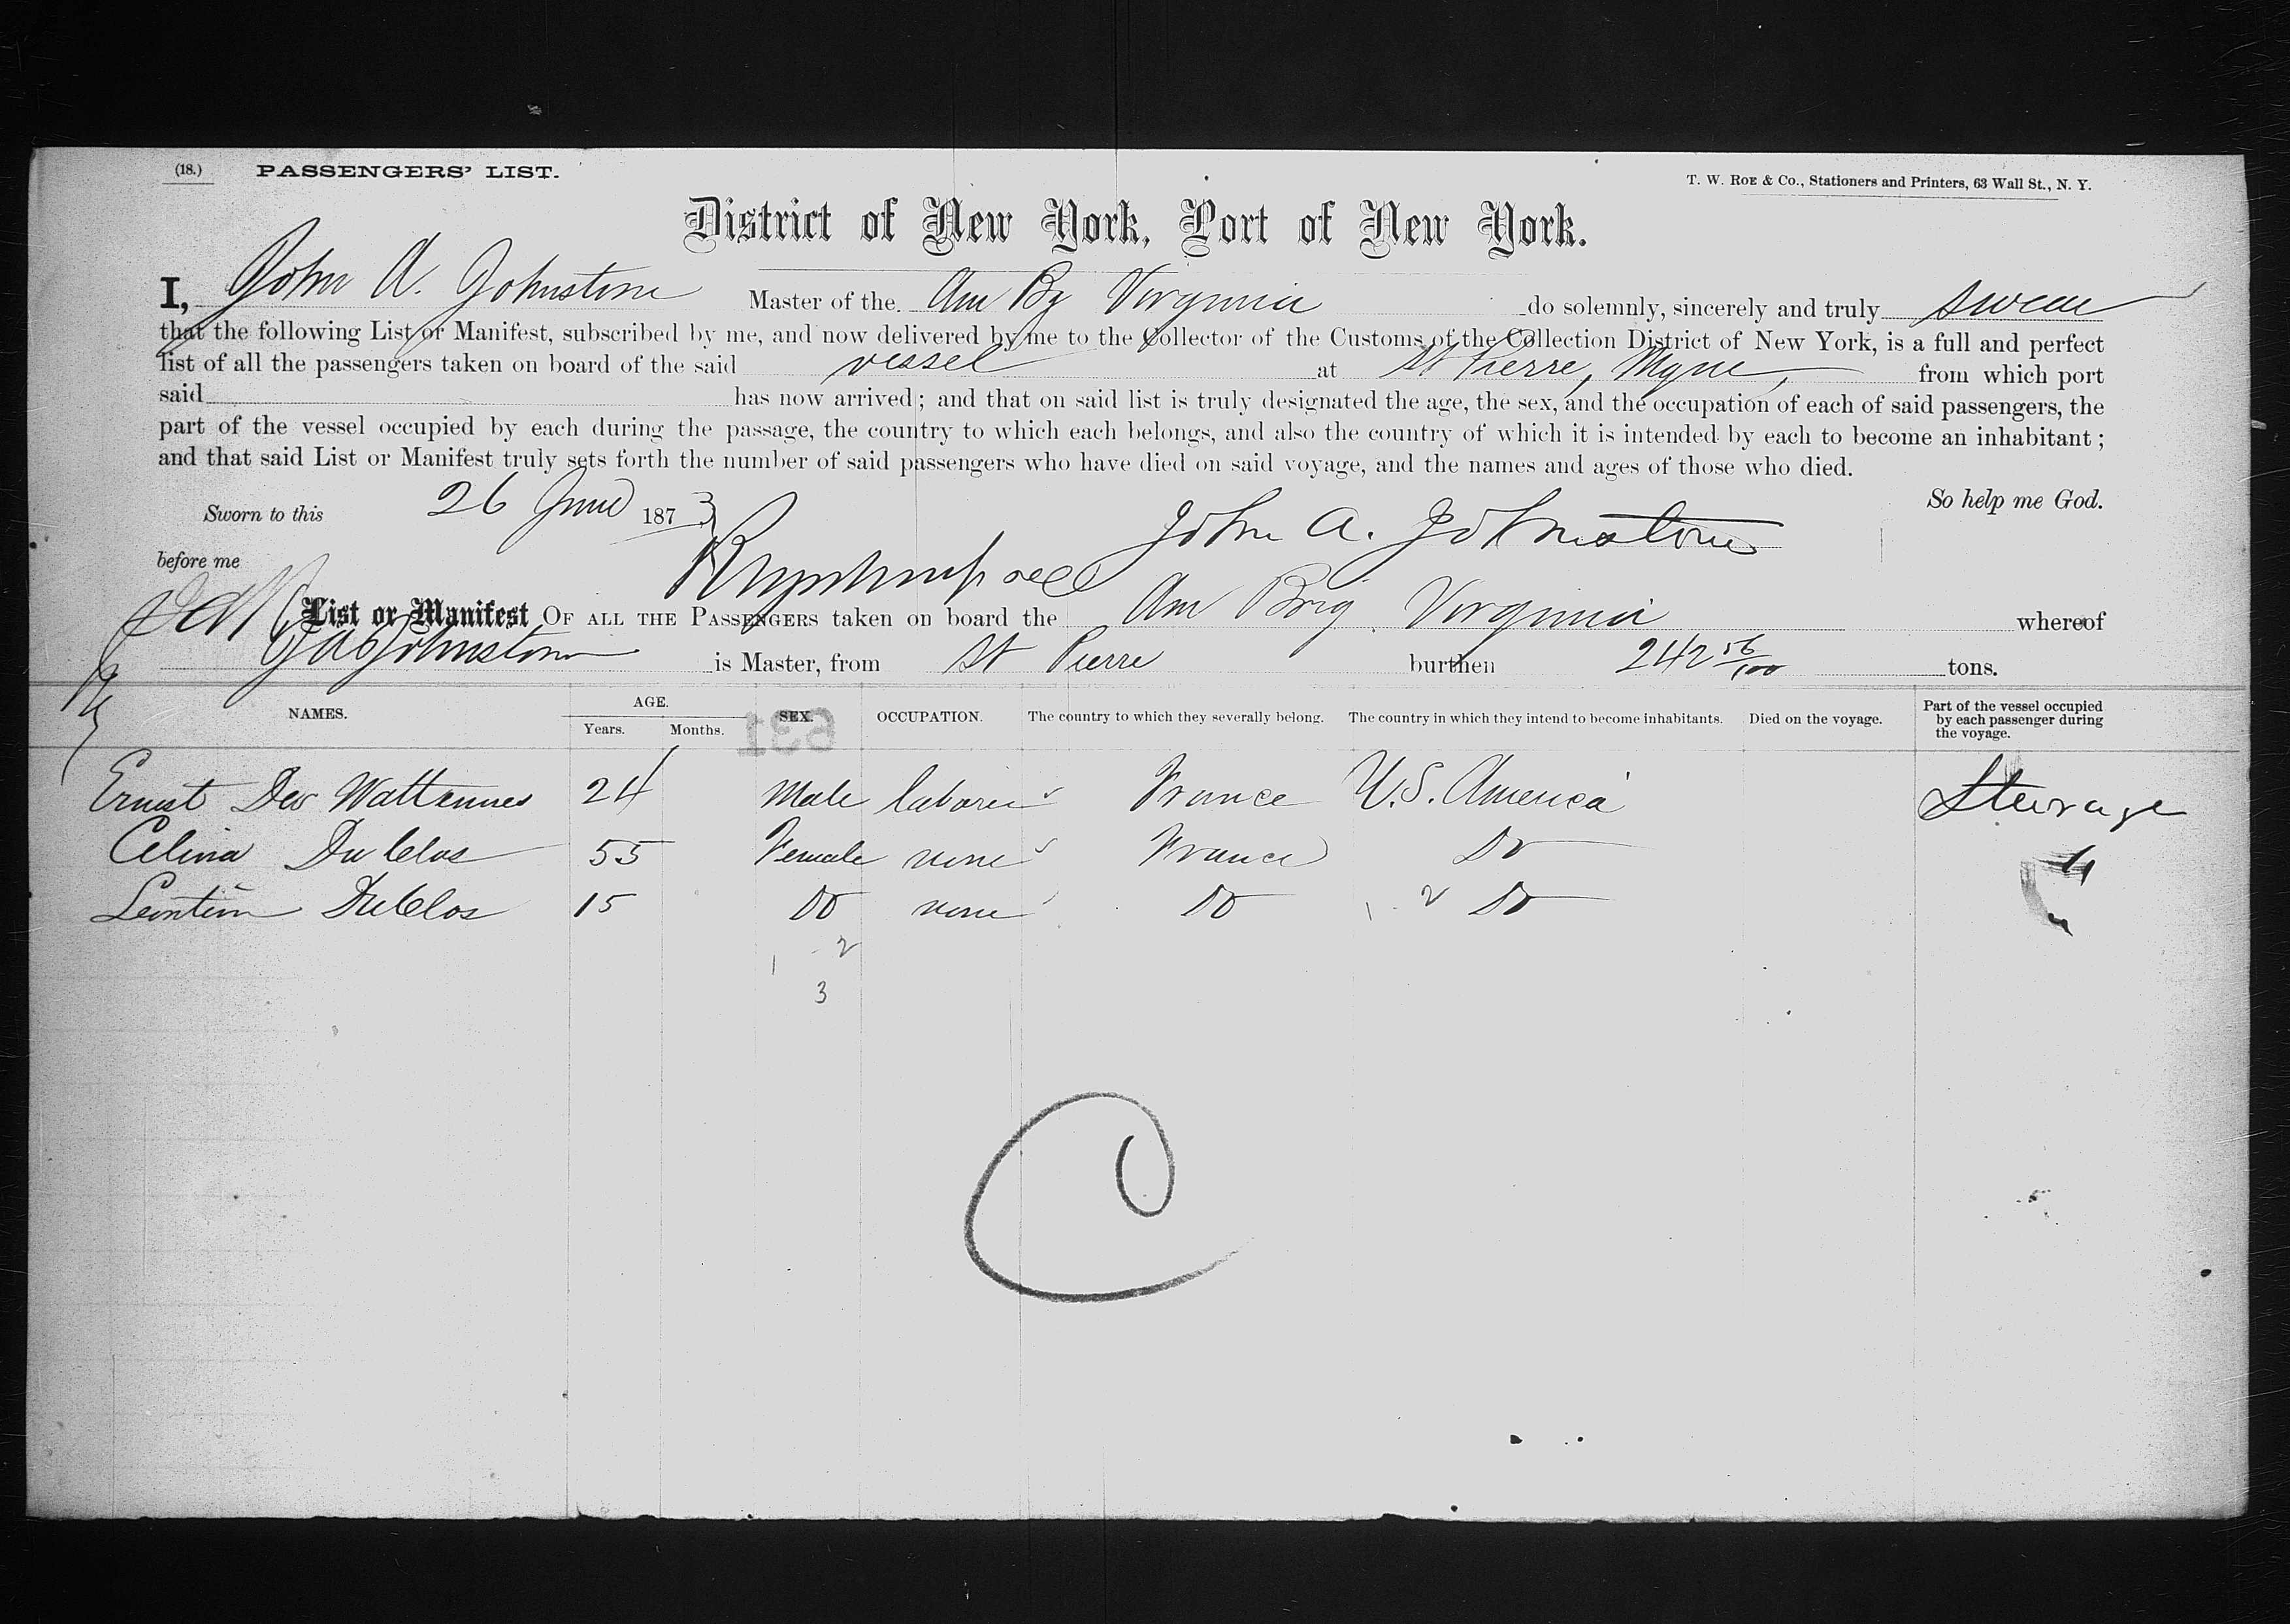 (18.) PASSENGERS' LIST.
T. W. ROE & Co., Stationers and Printers, 63 Wall St., N. Y.
District of New York, Port of New York.
I, John A. Johnston Master of the Am Bg Virginia do solemnly, sincerely and truly swear
that the following List or Manifest, subscribed by me, and now delivered by me to the Collector of the Customs of the Collection District of New York, is a full and perfect
list of all the passengers taken on board of the said vessel at St Pierre, Mque, from which port
said has now arrived; and that on said list is truly designated the age, the sex, and the occupation of each of said passengers, the
part of the vessel occupied by each during the passage, the country to which each belongs, and also the country of which it is intended by each to become an inhabitant;
and that said List or Manifest truly sets forth the number of said passengers who have died on said voyage, and the names and ages of those who died.
So help me God.
Sworn to this 26 June 1873
John A. Johnston
before me
List or Manifest OF ALL THE PASSENGERS taken on board the Am Brig Virginia whereof
J A Johnston is Master, from St Pierre burthen 242 56/100 tons.
NAMES. AGE. Years. Months. SEX. OCCUPATION. The country to which they severally belong. The country in which they intend to become inhabitants. Died on the voyage. Part of the vessel occupied by each passenger during the voyage.
139
Ernest Des Wattennes 24 Male laborer France U.S. America Steerage
Celina Du Clos 55 Female none France Do "
Leontin DuClos 15 Do none Do 1 2 Do "
1 2
3
C